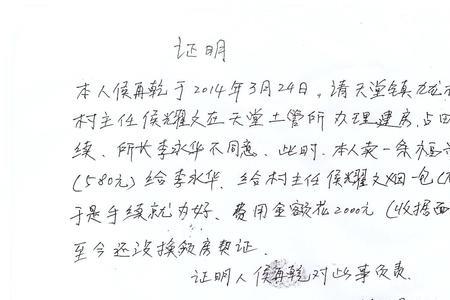 证明
本人侯再乾于2014年3月24日,请天堂镇九龙
村主任侯耀文在天堂土管所办理建房占田
续、所长李永华不同意、此时、本人卖一条
(580元)给李永华、给村主任侯耀文烟一包(
于是手续就办好、费用金额花2000元(收据
至今还没换领房契证、
证明人侯再乾对此事负责、